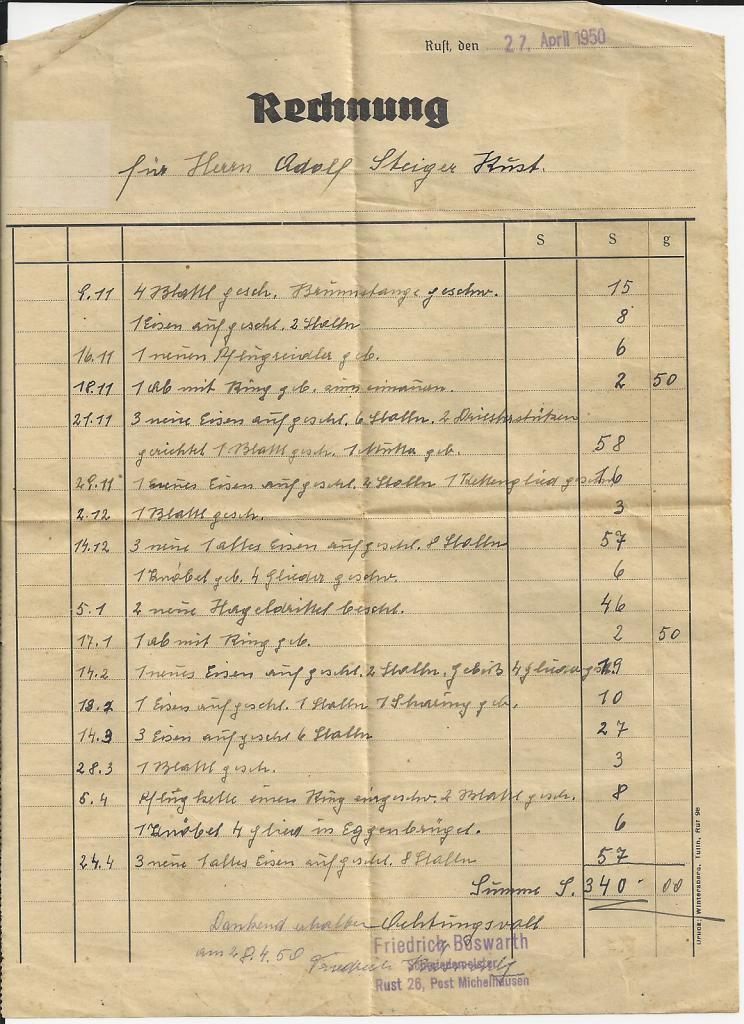 Rust, den 27. April 1950
Rechnung
für Herrn Adolf Steiger Rust.
S S g
9.11 4 Blattl gesch. Brunnstange geschw. 15
1 Eisen aufgeschl. 2 Stolln 8
16.11 1 neuen geb. 6
18.11 1 mit Ring geb. 2 50
21.11 3 neue Eisen aufgeschl. 6 Stolln. 2
gerichtet 1 Blattl gesch. 1 geb. 58
29.11 1 neues Eisen aufgeschl. 2 Stolln 1 Kettenglied 16
2.12 1 Blattl gesch. 3
14.12 3 neue 1 altes Eisen aufgeschl. 8 Stolln 57
1 Knöbel geb. 4 Glieder geschw. 6
5.1 2 neue beschl. 46
17.1 1 mit Ring geb. 2 50
14.2 1 neues Eisen aufgeschl. 2 Stolln. Gebiß 4 19
1 Eisen aufgeschl. 1 Stolln 1 geb. 10
14.3 3 Eisen aufgeschl 6 Stolln 27
28.3 1 Blattl gesch. 3
5.4 Pflugkette einen Ring eingeschw. 2 Blattl gesch. 8
1 Knöbel 4 Glied in 6
24.4 3 neue 1 altes Eisen aufgeschl. 8 Stolln 57
Summe S. 340 00
Dankend erhalten Achtungsvoll
am 28.4.50 Friedrich
Friedrich Boswarth
Schmiedemeister
Rust 26, Post Michelhausen
Druck: Wintersberg, Tulln, Ruf 96